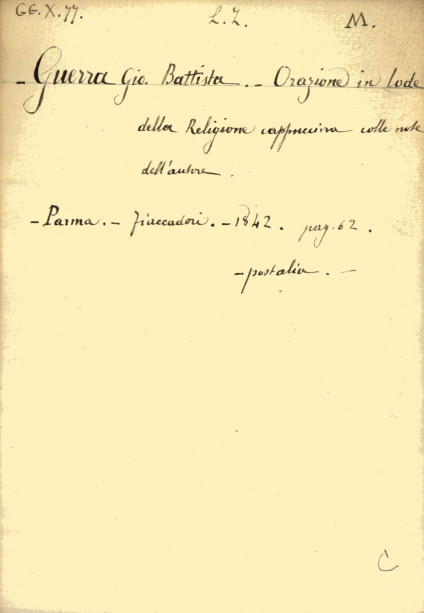 GG.X.77. L.Z. M.
- Guerra Gio. Battista. - Orazione in lode
della Religione cappuccina colle note
dell'autore.
- Parma. - Fiaccadori. - 1842. pag. 62.
- postalia. -
C